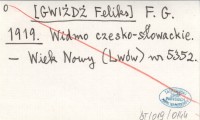 [GWIŻDŻ Feliks] F. G.
1919. Widmo czesko-słowackie.
— Wiek Nowy (Lwów) nr 5352.